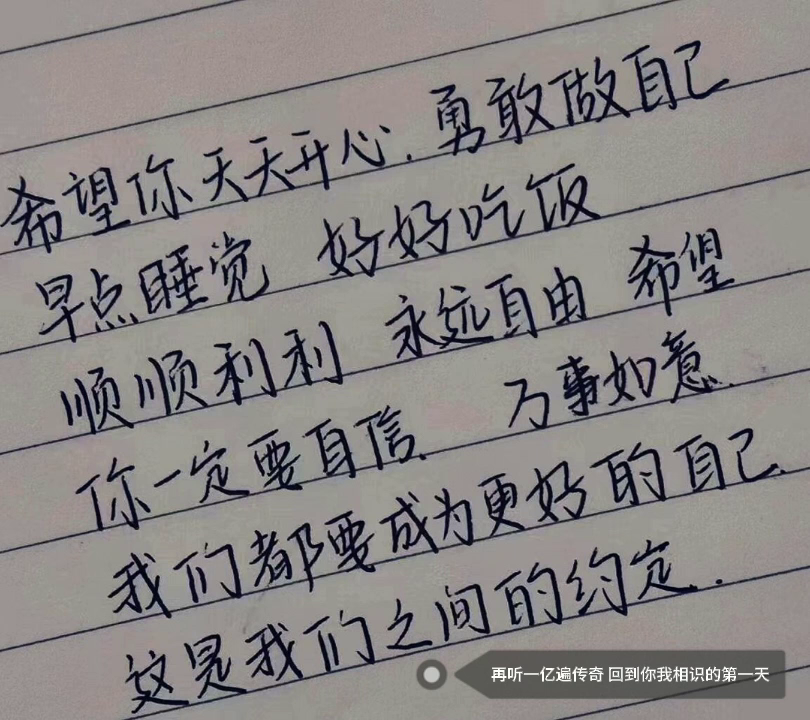 希望你天天开心.勇敢做自己
早点睡觉 好好吃饭
顺顺利利 永远自由 希望
你一定要自信 万事如意
我们都要成为更好的自己
这是我们之间的约定.
再听一亿遍传奇 回到你我相识的第一天